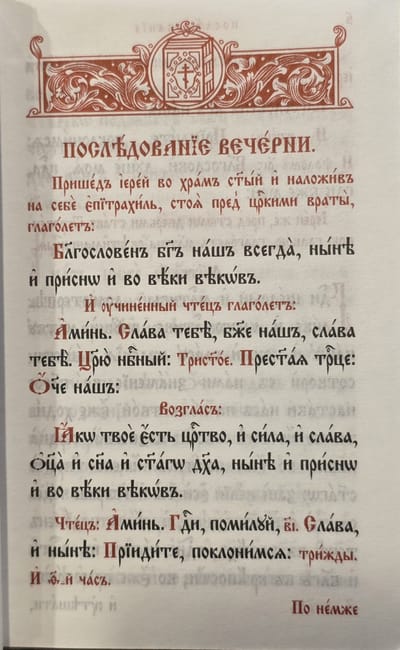 ПОСЛѢ́ДОВАНЇЕ ВЕЧЕ́РНИ.
Прише́дъ і҆ере́й во хра́мъ ст҃ы́й и҆ наложи́въ
на себѐ є҆пїтрахи́ль, стоѧ̀ пред̾ цр҃кими враты̀,
глаго́летъ:
Бл҃гослове́нъ бг҃ъ на́шъ всегда̀, ны́нѣ
и҆ при́снѡ и҆ во вѣ́ки вѣкѡ́въ.
И҆ ᲂу҆чине́нный чте́цъ глаго́летъ:
А҆ми́нь. Сла́ва тебѣ̀, бж҃е на́шъ, сла́ва
тебѣ̀. Цр҃ю̀ нб҃ный: Трист҃о́е. Прест҃а́ѧ трⷪ҇це:
Ѻ҆́ч҃е на́шъ:
Возгла́съ:
Ꙗ҆́кѡ твоѐ є҆́сть црⷭ҇тво, и҆ си́ла, и҆ сла́ва,
ѻ҆ц҃а̀ и҆ сн҃а и҆ ст҃а́гѡ дх҃а, ны́нѣ и҆ при́снѡ
и҆ во вѣ́ки вѣкѡ́въ.
Чте́цъ: А҆ми́нь. Гдⷭ҇и, поми́лꙋй, в҃і. Сла́ва,
и҆ ны́нѣ: Прїиди́те, поклони́мсѧ: три́жды.
И҆ ѱало́мъ
По не́мже